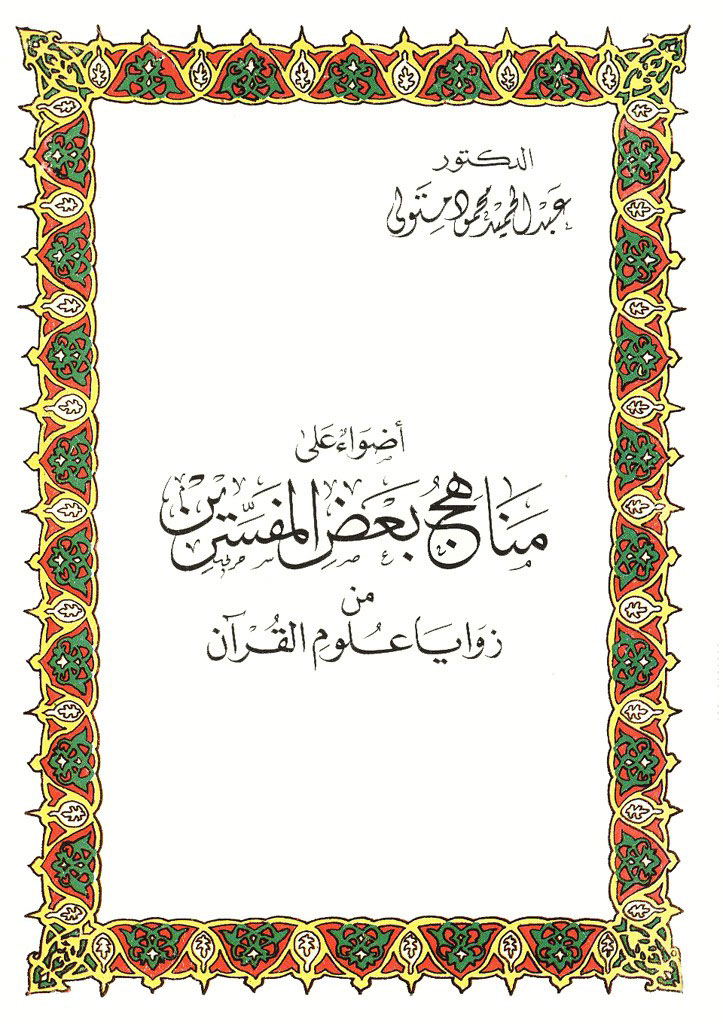 الدكتور
عَبْد الحميد محمود متَولى
أضوَاء عَلى
مَناهجُ بَعَض المفسَّرِين
من
زوَايَا عُلومِ القُرآن